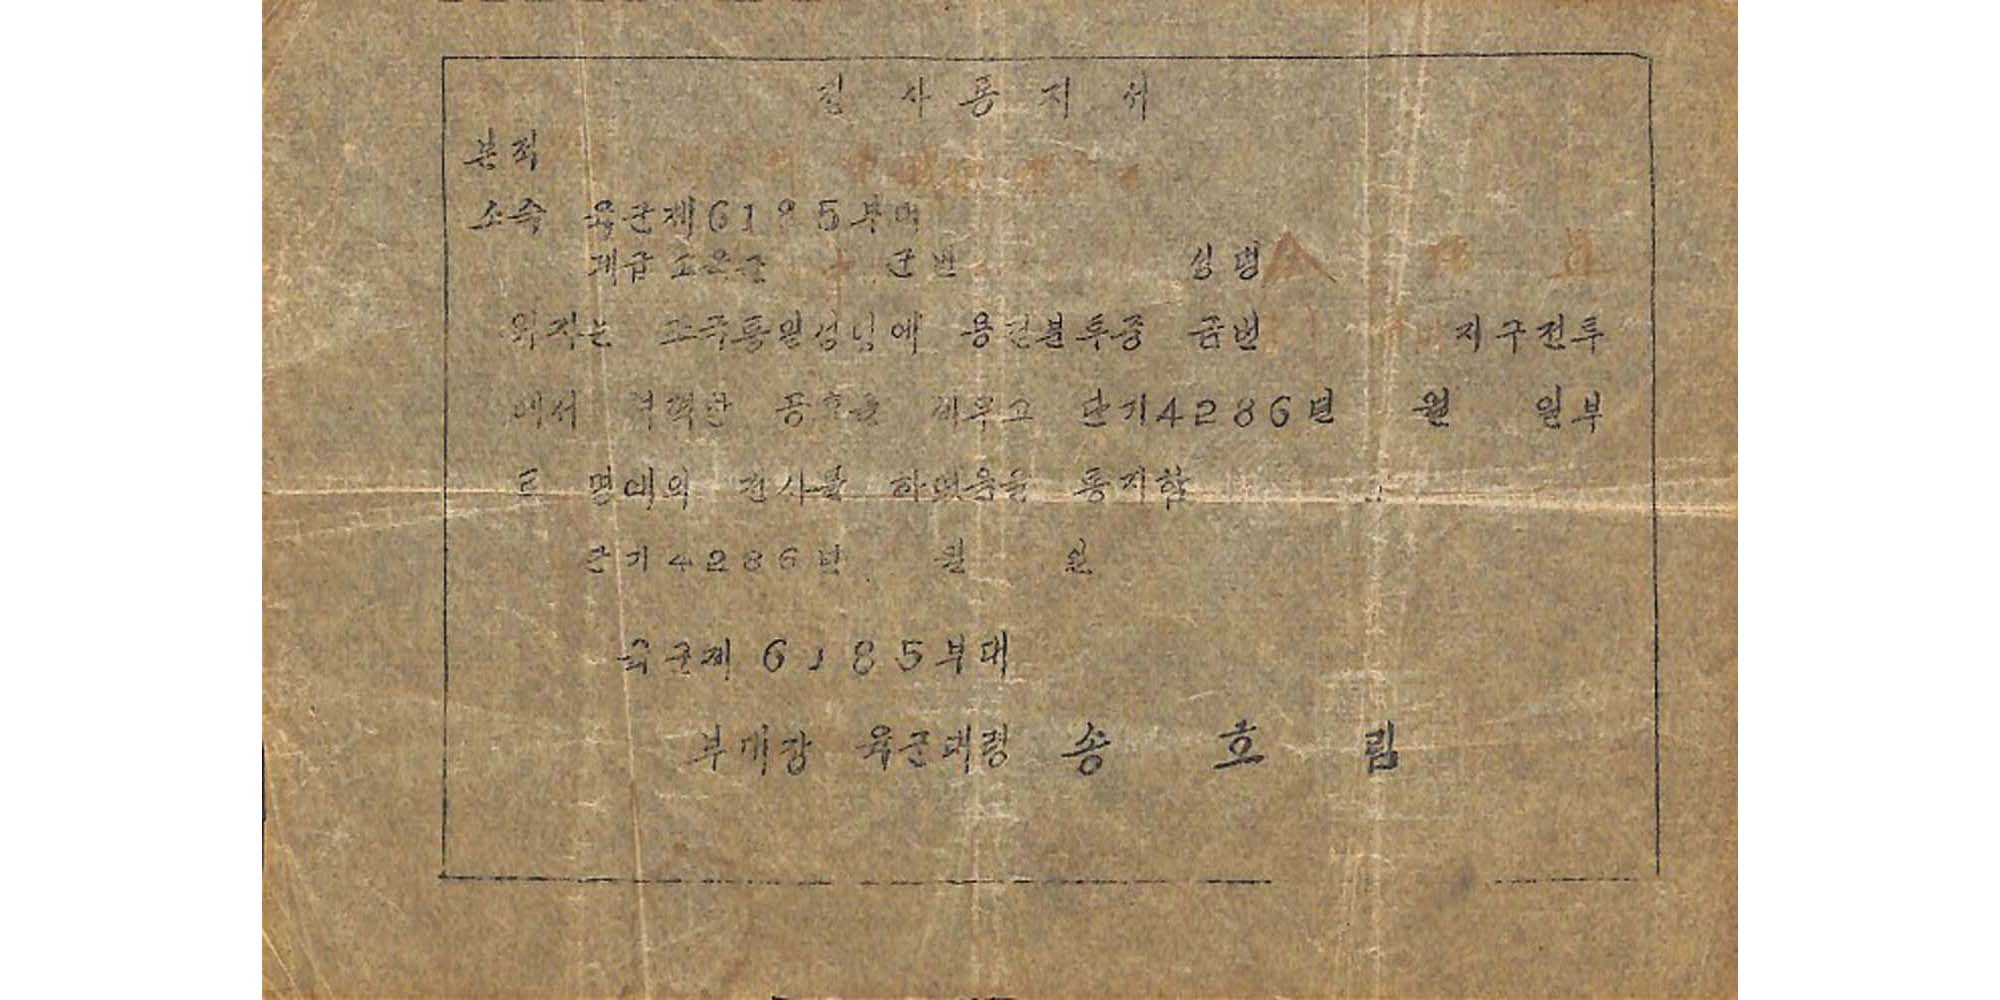 전 사 통 지 서
본적
소속 육군제6185부대
계급 군번 성명
위자는 조국통일성업에 용전분투중 금번 지구전투
에서 혁혁한 공호를 세우고 단기4286년 월 일부
로 명예의 전사를 하였음을 통지함
단기4286년 월 일
육군제 6185부대
부대장 육군대령 송 호 림